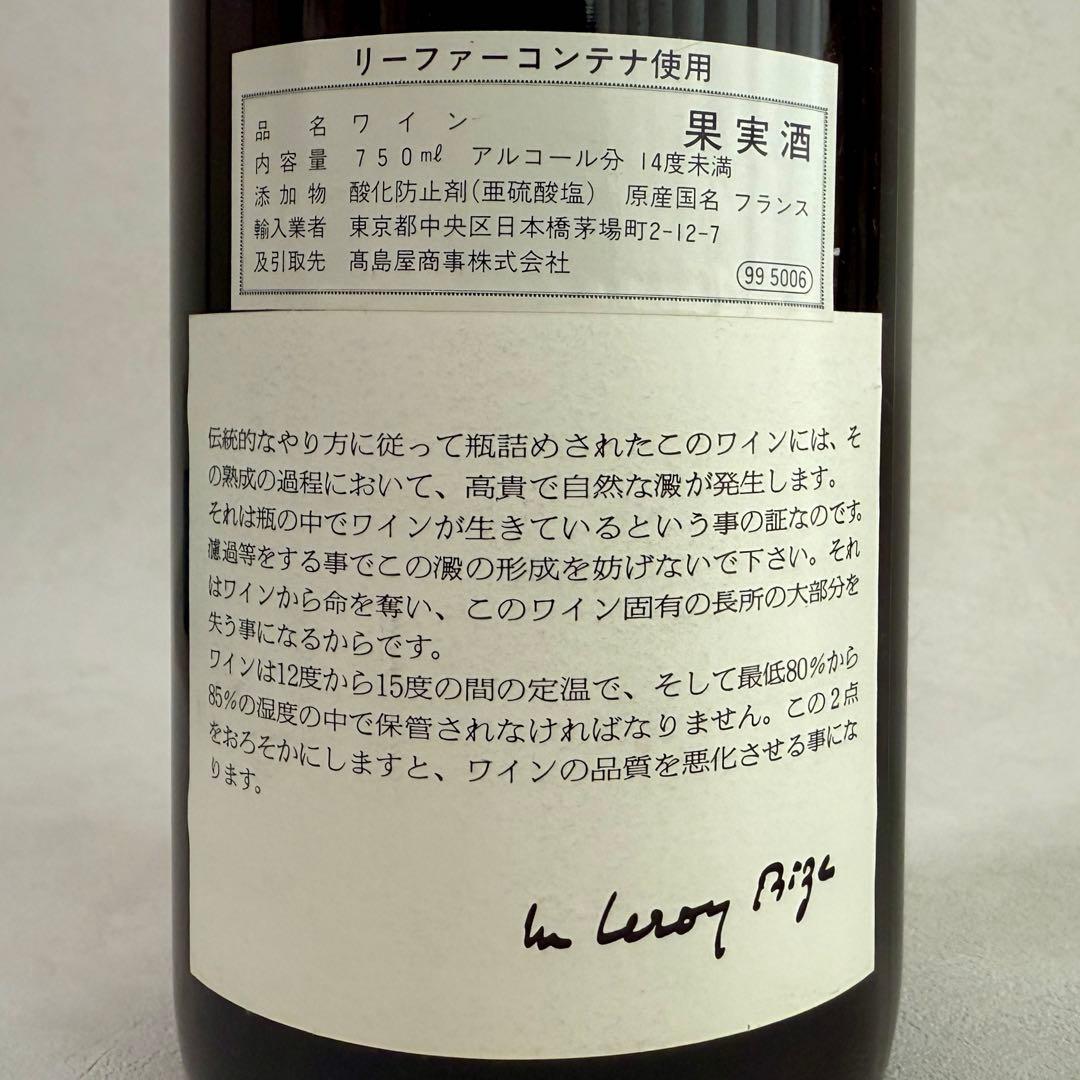 リーファーコンテナ使用
品名 ワイン 果実酒
内容量 750ml アルコール分 14度未満
添加物 酸化防止剤(亜硫酸塩) 原産国名 フランス
輸入業者 東京都中央区日本橋茅場町2-12-7
及引取先 髙島屋商事株式会社
99 5006
伝統的なやり方に従って瓶詰めされたこのワインには、そ
の熟成の過程において、高貴で自然な澱が発生します。
それは瓶の中でワインが生きているという事の証なのです。
濾過等をする事でこの澱の形成を妨げないで下さい。それ
はワインから命を奪い、このワイン固有の長所の大部分を
失う事になるからです。
ワインは12度から15度の間の定温で、そして最低80%から
85%の湿度の中で保管されなければなりません。この2点
をおろそかにしますと、ワインの品質を悪化させる事にな
ります。
Leroy Bize